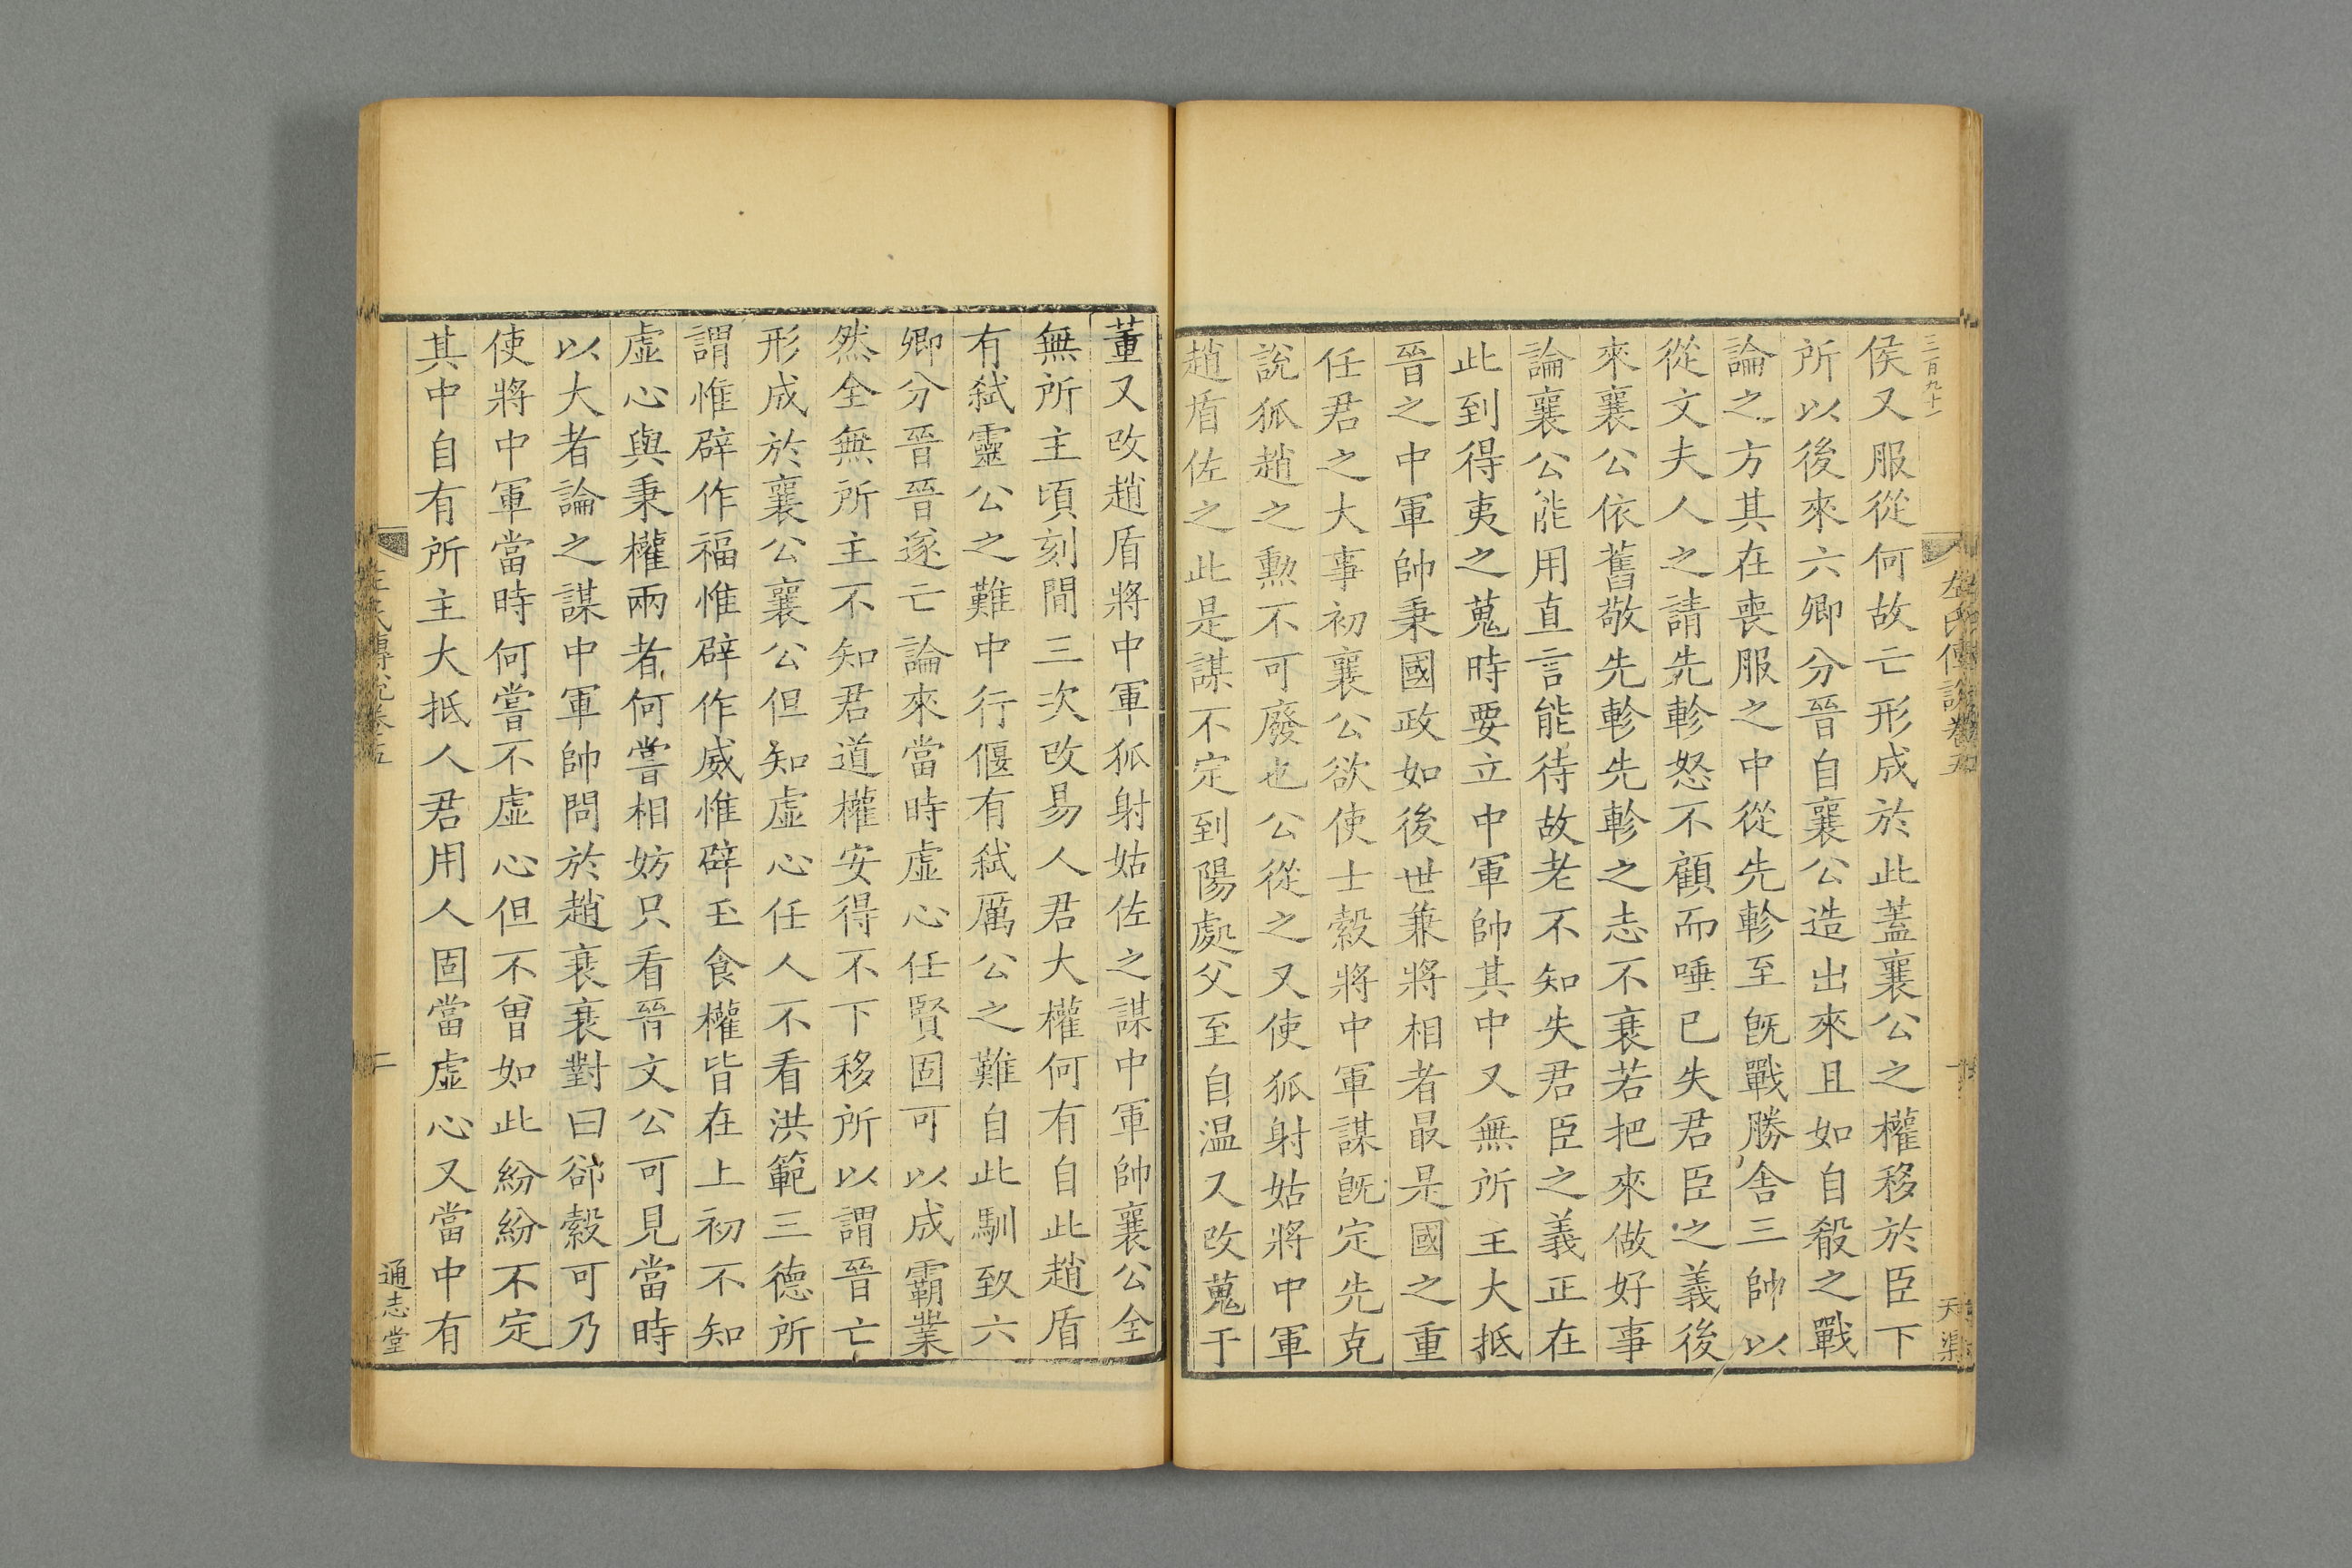 三百九十一
左氏傳說卷五
天渠
侯又服從何故亡形成於此蓋襄公之權移於臣下
所以後來六卿分晉自襄公造出來且如自殽之戰
論之方其在喪服之中從先軫至旣戰勝舍三帥以
從文夫人之請先軫怒不顧而唾已失君臣之義後
來襄公依舊敬先軫先軫之志不衰若把來做好事
論襄公能用直言能待故老不知失君臣之義正在
此到得夷之蒐時要立中軍帥其中又無所主大抵
晉之中軍帥秉國政如後世兼將相者最是國之重
任君之大事初襄公欲使士縠將中軍謀旣定先克
說狐趙之勲不可廢也公從之又使狐射姑將中軍
趙盾佐之此是謀不定到陽處父至自温又改蒐于
董又改趙盾將中軍狐射姑佐之謀中軍帥襄公全
無所主頃刻間三次改易人君大權何有自此趙盾
有弑靈公之難中行偃有弑厲公之難自此馴致六
卿分晉晉遂亡論來當時虛心任賢固可以成霸業
然全無所主不知君道權安得不下移所以謂晉亡
形成於襄公襄公但知虛心任人不看洪範三德所
謂惟辟作福惟辟作威惟辟玉食權皆在上初不知
虛心與秉權兩者何嘗相妨只看晉文公可見當時
以大者論之謀中軍帥問於趙衰衰對曰郤縠可乃
使將中軍當時何嘗不虛心但不曾如此紛紛不定
其中自有所主大抵人君用人固當虛心又當中有
左氏傳說卷五
二
通志堂